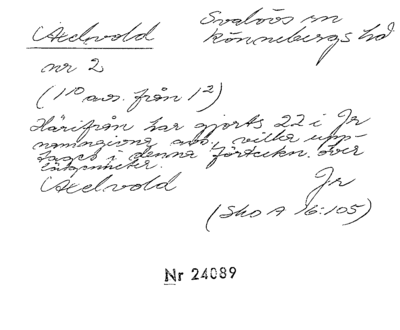 Axelvold
Svalövs sn
Rönnebergs hd
nr 2
(1¹⁰ avs. från 1²)
Härifrån har gjorts 22 i Jr
namngivna avs., vilka upp-
tages i denna förteckn. över
lägenheter.
Axelvold Jr
(Sko A 16:105)
Nr 24089